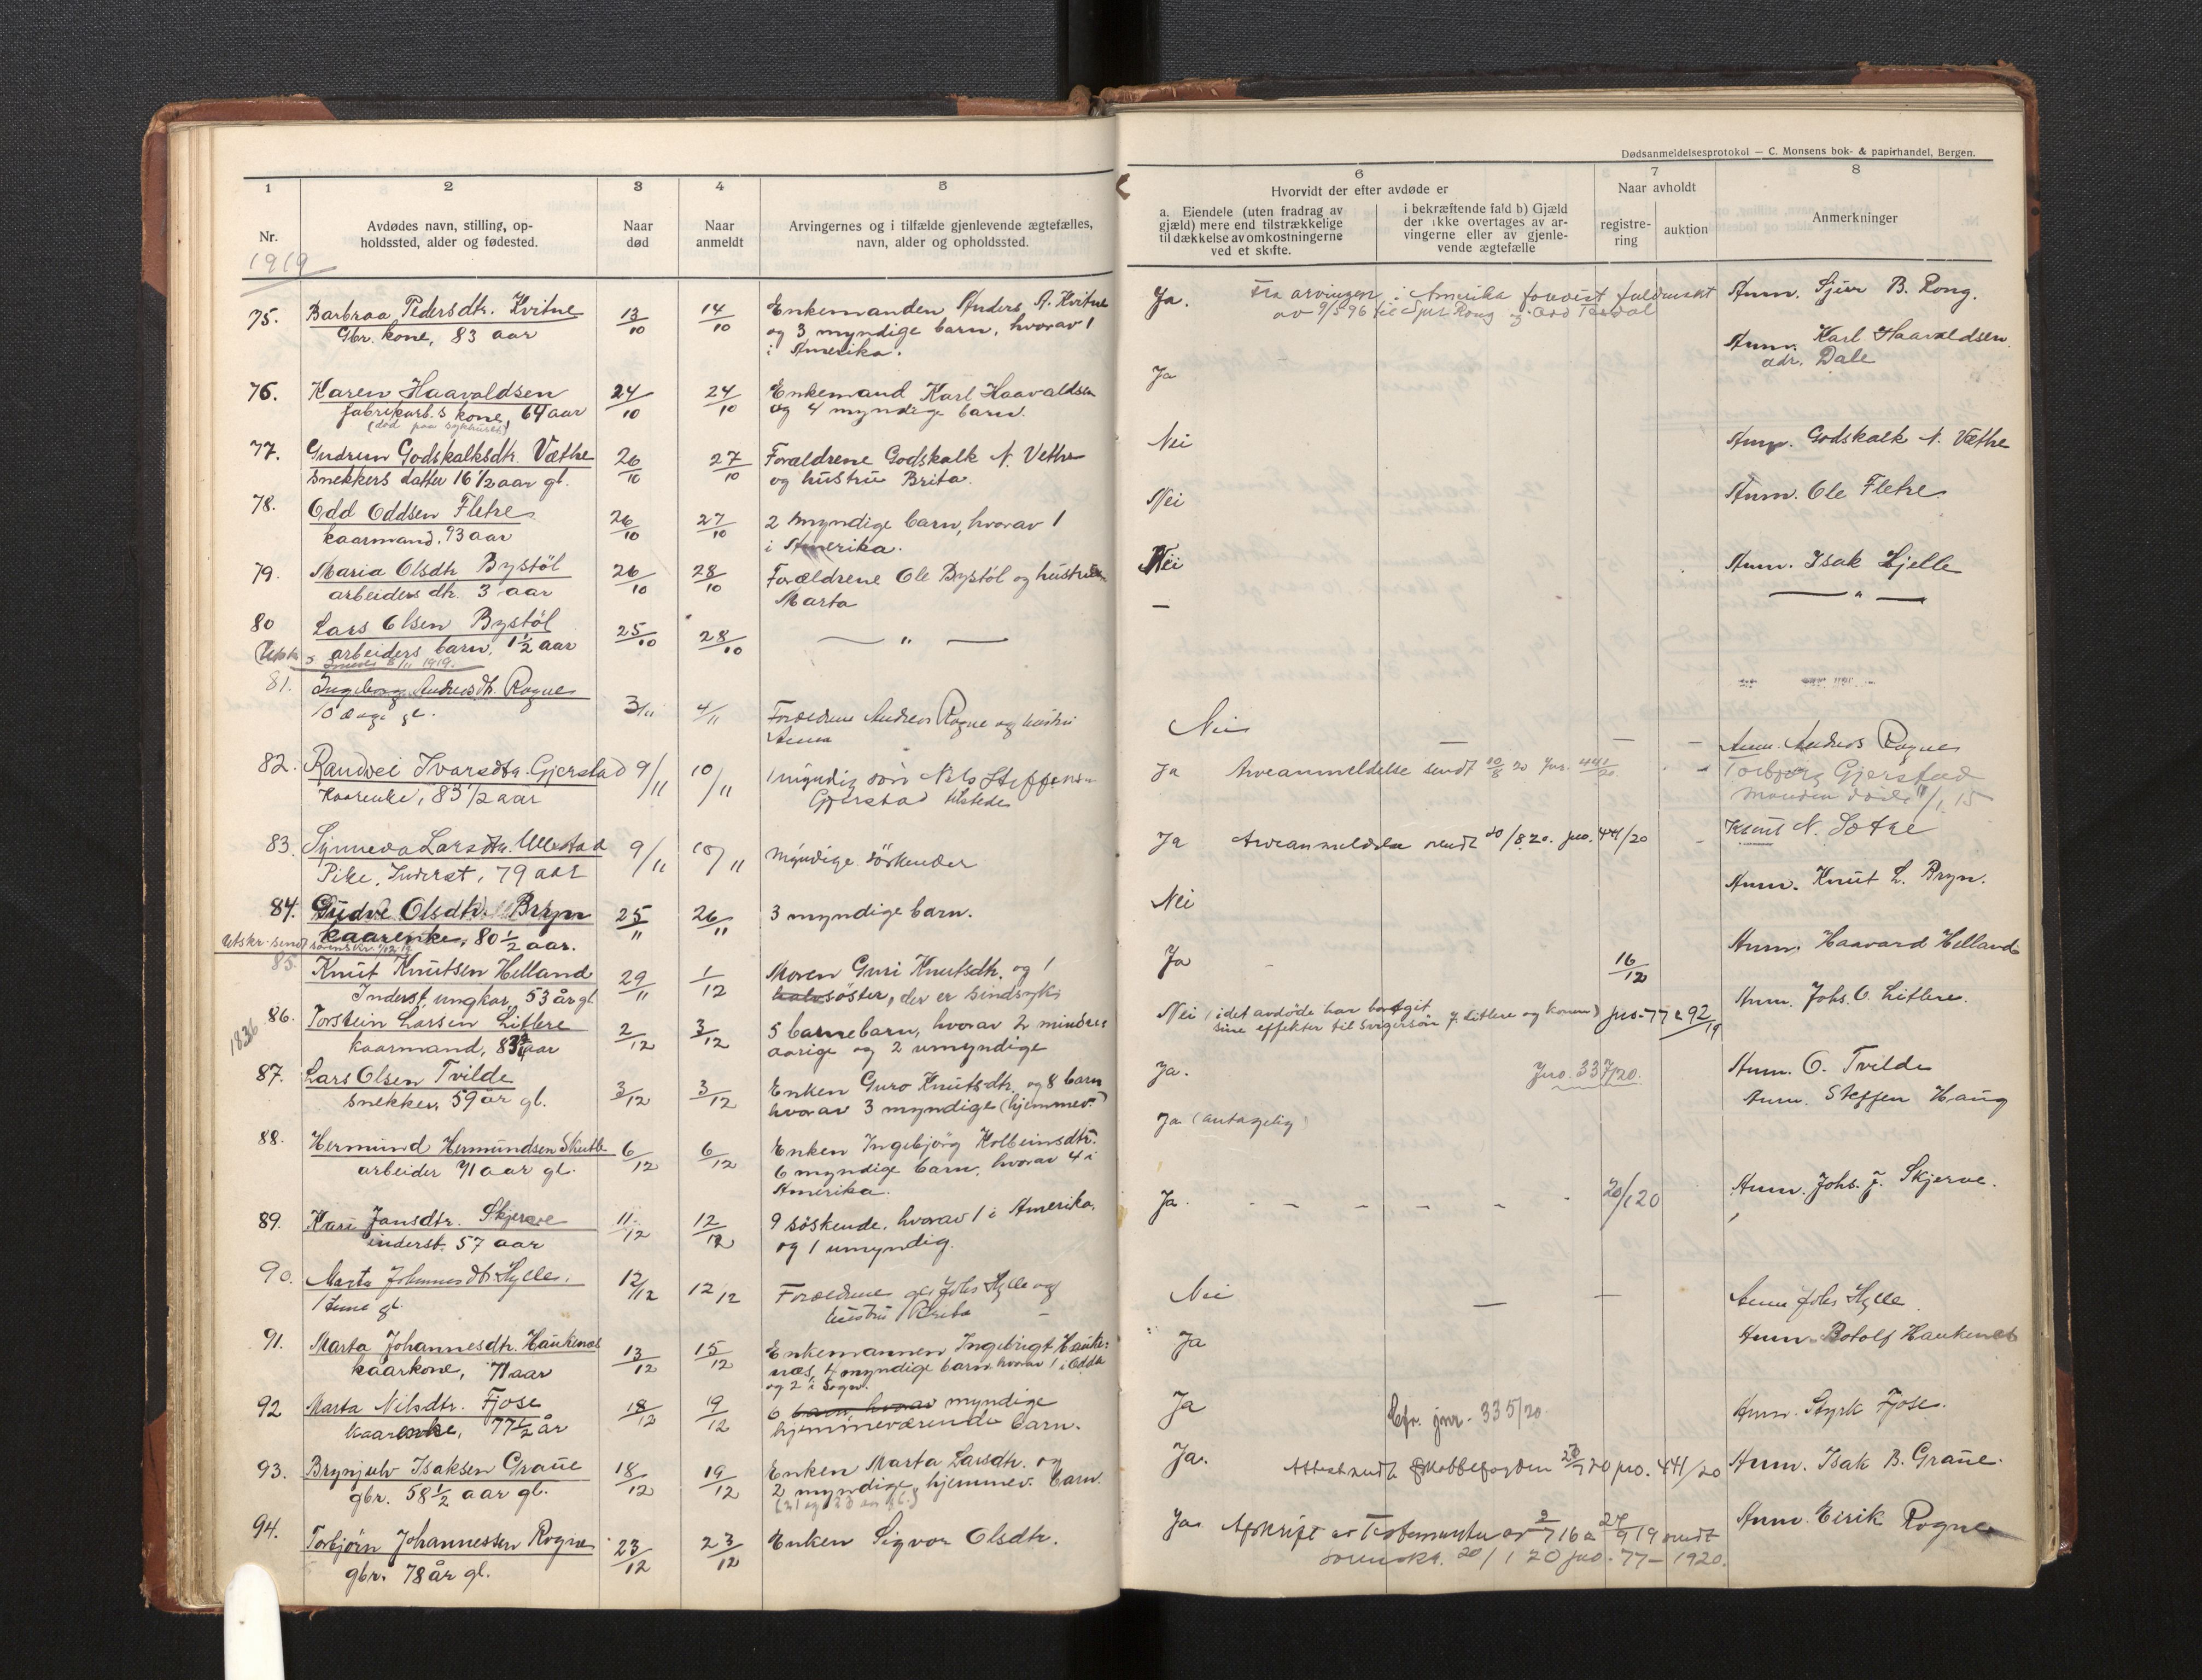 Dødsanmeldelsesprotokol — C. Monsens bok- & papirhandel, Bergen.
1 2 3 4 5
Nr. Avdødes navn, stilling, op-
holdssted, alder og fødested.
Naar
død
Naar
anmeldt
Arvingernes og i tilfælde gjenlevende ægtefælles,
navn, alder og opholdssted.
6 7 8
Hvorvidt der efter avdøde er
a. Eiendele (uten fradrag av
gjæld) mere end tilstrækkelige
til dækkelse av omkostningerne
ved et skifte.
i bekræftende fald b) Gjæld
der ikke overtages av ar-
vingerne eller av gjenle-
vende ægtefælle
Naar avholdt
registre-
ring
auktion
Anmerkninger
1919
75. Barbraa Pedersdtr. Kvitne 13/10 14/10 Enkemanden Anders A. Kvitne
Gbr. kone, 83 aar og 3 myndige barn, hvorav 1
i Amerika.
Ja. Fra arvingen i Amerika forevist fuldmakt
Anm. Sjur B. Rong.
76. Karen Haavaldsen 24/10 24/10 Enkemand Karl Haavaldsen
fabrikarb.s kone, 64 aar og 4 myndige barn.
(død paa sykhuset)
Ja Anm. Karl Haavaldsen.
adr. Dale
77. Gudrun Godskalksdtr. Væthe 26/10 27/10 Forældrene Godskalk N. Vethe
snekkers datter 16 1/2 aar gl. og hustru Brita.
Nei Anm. Godskalk N. Væthe
78. Odd Oddsen Fletre 26/10 27/10 2 myndige barn, hvorav 1
kaarmand. 93 aar i Amerika.
Nei Anm. Ole Fletre
79. Maria Olsdtr Bystöl 26/10 28/10 Forældrene Ole Bystöl og hustru
arbeiders dtr. 3 aar Marta
Nei Anm. Isak Hjelle
80 Lars Olsen Bystöl 25/10 28/10 — " —
arbeiders barn, 1 1/2 aar
— — " —
81. Ingeborg Andreasdtr. Rogne 3/11 4/11 Forældrene Andreas Rogne og hustru
10 dage gl. Anna
Nei — — — Anm. Andreas Rogne
82. Randvei Ivarsdtr. Gjerstad 9/11 10/11 1 myndig sön Nils Steffens-
Kaarenke, 83 1/2 aar Gjerstad tilstede
Ja Arveanmeldelse sendt 20/8 20 jnr. 441/20 Torbjørg Gjerstad
Manden døde 11/1 15
83. Synneva Larsdtr. Ullestad 9/11 10/11 Myndige söskender
Pike, Inderst, 79 aar
Ja Arveanmeldelse sendt 20/8 20. jno. 441/20 Knut N. Sætre
84. Gudve Olsdtr. Bryn 25/11 26/11 3 myndige barn.
kaarenke, 80 1/2 aar.
Nei Anm. Knut L. Bryn.
85. Knut Knutsen Helland 29/11 1/12 Moren Guri Knutsdtr. og 1
Inderst, ungkar, 53 år gl halvsöster, der er sindssyk
Ja 16/12 Anm. Haavard Helland
86. Torstein Larsen Litlere 2/12 3/12 5 barnebarn, hvorav 2 mindre-
kaarmand, 83 aar aarige og 2 umyndige
1836
Nei (idet avdøde har bortgit jno. 77 a 92/19
sine effekter til svigersön J. Litlere og kone) Anm. Johs. O. Litlere.
87. Lars Olsen Tvilde 3/12 3/12 Enken Guro Knutsdtr. og 8 barn
snekker, 59 år gl. hvorav 3 myndige (hjemmev.)
Ja. Jno. 337/20. Anm. O. Tvilde
88. Hermund Hermundsen Skutle 6/12 6/12 Enken Ingebjörg Kolbeinsdtr.
arbeider 71 aar gl. 6 myndige barn, hvorav 4 i
Amerika.
Ja (antagelig) Anm. Steffen Haug
89. Kari Jansdtr. Skjerve 11/12 12/12 9 söskende. hvorav 1 i Amerika,
inderst. 57 aar og 1 umyndig.
Ja. - - - - - - 20/1 20 Anm. Johs. J. Skjerve.
90. Marta Johannesdtr Hylle. 12/12 12/12 Forældrene Johs Hylle og
1 time gl. hustru Brita
Nei — — Anm Johs Hylle
91. Marta Johannesdtr. Haukenæs 13/12 15/12 Enkemannen Ingebrigt Hauke-
kaarkone, 71 aar næs, 4 myndige barn hvorav 1 i Odda
og 2 i Sogn.
Ja Anm. Botolf Haukenes
92 Marta Nilsdtr. Fjose 18/12 19/12 6 barn hvorav myndige
kaarenke, 77 1/2 år hjemmeværende barn.
Ja Cfr. jnr. 335/20. Anm. Styrk Fjose.
93. Brynjulv Isaksen Graue 18/12 19/12 Enken Marta Larsdtr. og
gbr. 58 1/2 aar gl. 2 myndige, hjemmev. barn.
Ja. jno. 441/20 Anm. Isak B. Graue.
94. Torbjörn Johannessen Rogne 23/12 23/12 Enken Sigvor Olsdtr.
gbr. 78 år gl.
Ja Afskrift av Testamenter av 2/7 16 a 27/9 19 sendt
sorenskr. 20/1 20 jno. 77 - 1920.
Anm. Eirik Rogne